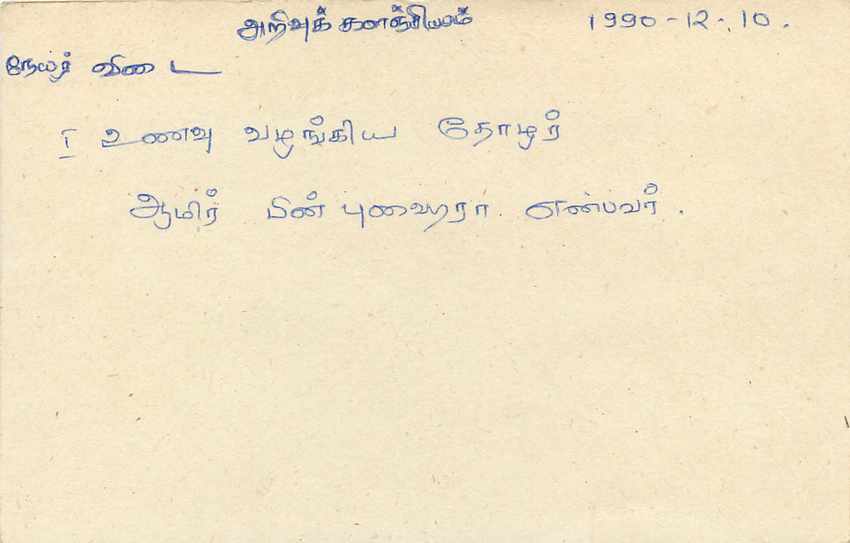 அறிவுக் களஞ்சியம் 1990-12-10.
நேயர் விடை
I உணவு வழங்கிய தோழர்
ஆமிர் பின் புஹைரா என்பவர்.